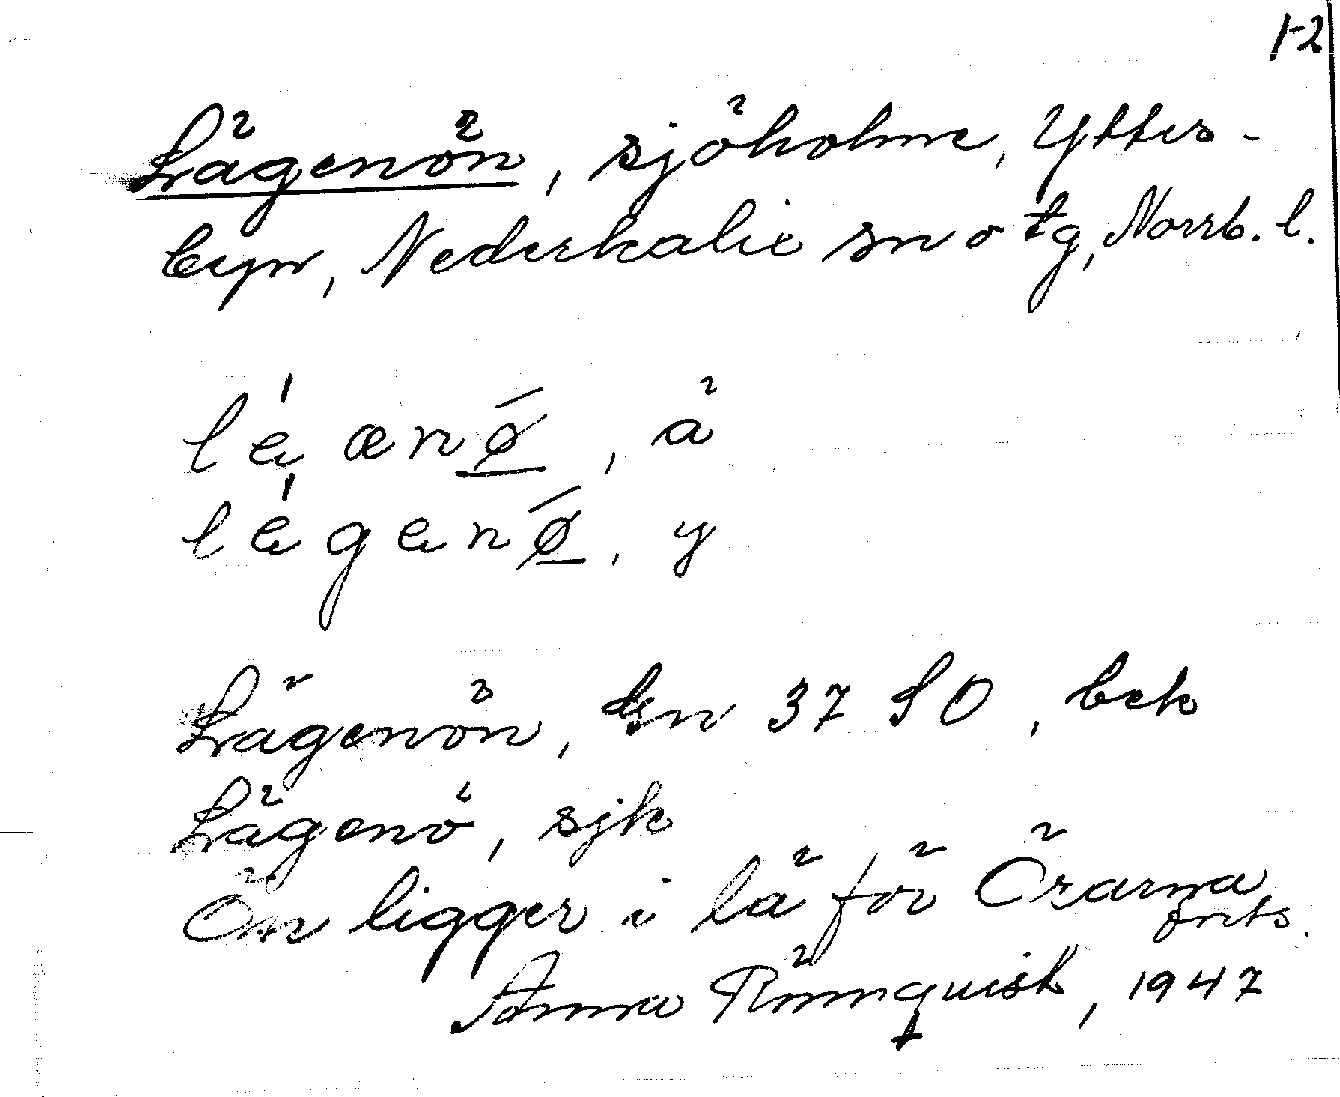 1-2
Lägenön, sjöholme, Ytter-
byn, Nederkalix sn o tg, Norrb. l.
Lägenön, Gn 37 SO, bek
Lägenö, sjk
Ön ligger i lä för Örarna
forts.
Anna Rönnquist, 1947